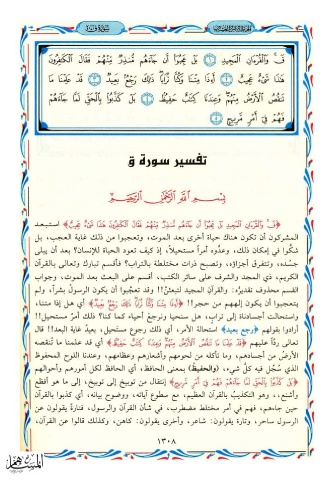 سورة ق
قٓ ۚ وَٱلْقُرْءَانِ ٱلْمَجِيدِ ۝١ بَلْ عَجِبُوٓا۟ أَن جَآءَهُم مُّنذِرٌ مِّنْهُمْ فَقَالَ ٱلْكَٰفِرُونَ
هَٰذَا شَىْءٌ عَجِيبٌ ۝٢ أَءِذَا مِتْنَا وَكُنَّا تُرَابًا ۖ ذَٰلِكَ رَجْعٌۢ بَعِيدٌ ۝٣ قَدْ عَلِمْنَا مَا
تَنقُصُ ٱلْأَرْضُ مِنْهُمْ ۖ وَعِندَنَا كِتَٰبٌ حَفِيظٌۢ ۝٤ بَلْ كَذَّبُوا۟ بِٱلْحَقِّ لَمَّا جَآءَهُمْ
فَهُمْ فِىٓ أَمْرٍ مَّرِيجٍ ۝٥
تفسير سورة ق
بِسْمِ ٱللَّهِ ٱلرَّحْمَٰنِ ٱلرَّحِيمِ
﴿قٓ وَٱلْقُرْءَانِ ٱلْمَجِيدِ بَلْ عَجِبُوٓا۟ أَن جَآءَهُم مُّنذِرٌ مِّنْهُمْ فَقَالَ ٱلْكَٰفِرُونَ هَٰذَا شَىْءٌ عَجِيبٌ﴾ استبعد
المشركون أن تكون هناك حياة أخرى بعد الموت، وتعجبوا من ذلك غاية العجب، بل
شكُّوا في إمكان ذلك، وعدُّوه أمراً مستحيلاً، إذ كيف تعود الحياة للإنسان؟ بعد أن يبلى
جسده، وتتفرق أجزاؤه، وتصبح ذرات مختلطة بالتراب؟ فأقسم تبارك وتعالى بالقرآن
الكريم، ذي المجد والشرف على سائر الكتب، أقسم على البعث بعد الموت، وجواب
القسم محذوف تقديره: والقرآن المجيد لتبعثنَّ!! وقد تعجبوا أن يكون الرسول بشراً، ولم
يتعجبوا أن يكون إلههم من حجر!! ﴿أَءِذَا مِتْنَا وَكُنَّا تُرَابًا ذَٰلِكَ رَجْعٌۢ بَعِيدٌ﴾ أي هل إذا متنا،
واستحالت أجسادنا إلى تراب، هل سنحيا ونرجع أحياء كما كنا؟ ذلك أمرٌ مستحيل!!
أرادوا بقولهم ﴿رجع بعيد﴾ استحالة الأمر، أي ذلك رجوع مستحيل، بعيدٌ غاية البعد!! قال
تعالى رداً عليهم ﴿قَدْ عَلِمْنَا مَا تَنقُصُ ٱلْأَرْضُ مِنْهُمْ وَعِندَنَا كِتَٰبٌ حَفِيظٌۢ﴾ أي قد علمنا ما تُنقصه
الأرضُ من أجسادهم، وما تأكله من لحومهم وأشعارهم وعظامهم، وعندنا اللوح المحفوظ
الذي سُجّل فيه كلُّ شيء، و(الحفيظ) بمعنى الحافظ، أي الحافظ لكل أمورهم وأحوالهم
﴿بَلْ كَذَّبُوا۟ بِٱلْحَقِّ لَمَّا جَآءَهُمْ فَهُمْ فِىٓ أَمْرٍ مَّرِيجٍ﴾ إنتقال من توبيخ إلى توبيخ، إلى ما هو أفظع
وأشنع،، وهو التكذيب بالقرآن العظيم، مع سطوع آياته، ووضوح بيانه، أي كذبوا بالقرآن
حين جاءهم، فهم في أمر مختلط مضطرب، في شأن القرآن والرسول، فتارة يقولون عن
الرسول ساحر، وتارة يقولون: شاعر، وأخرى يقولون: كاهن، وكذلك قالوا عن القرآن،
١٣٠٨